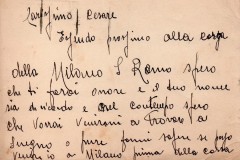 Carissimo Cesare
Essendo prossimo alla corsa
della Milano S Remo spero
che ti farai onore e il tuo nome
sia di ricordo e nel contempo spero
che Vorrai Venirmi a Trovare a
o pure fammi sapere se posso
a Milano prima della corsa